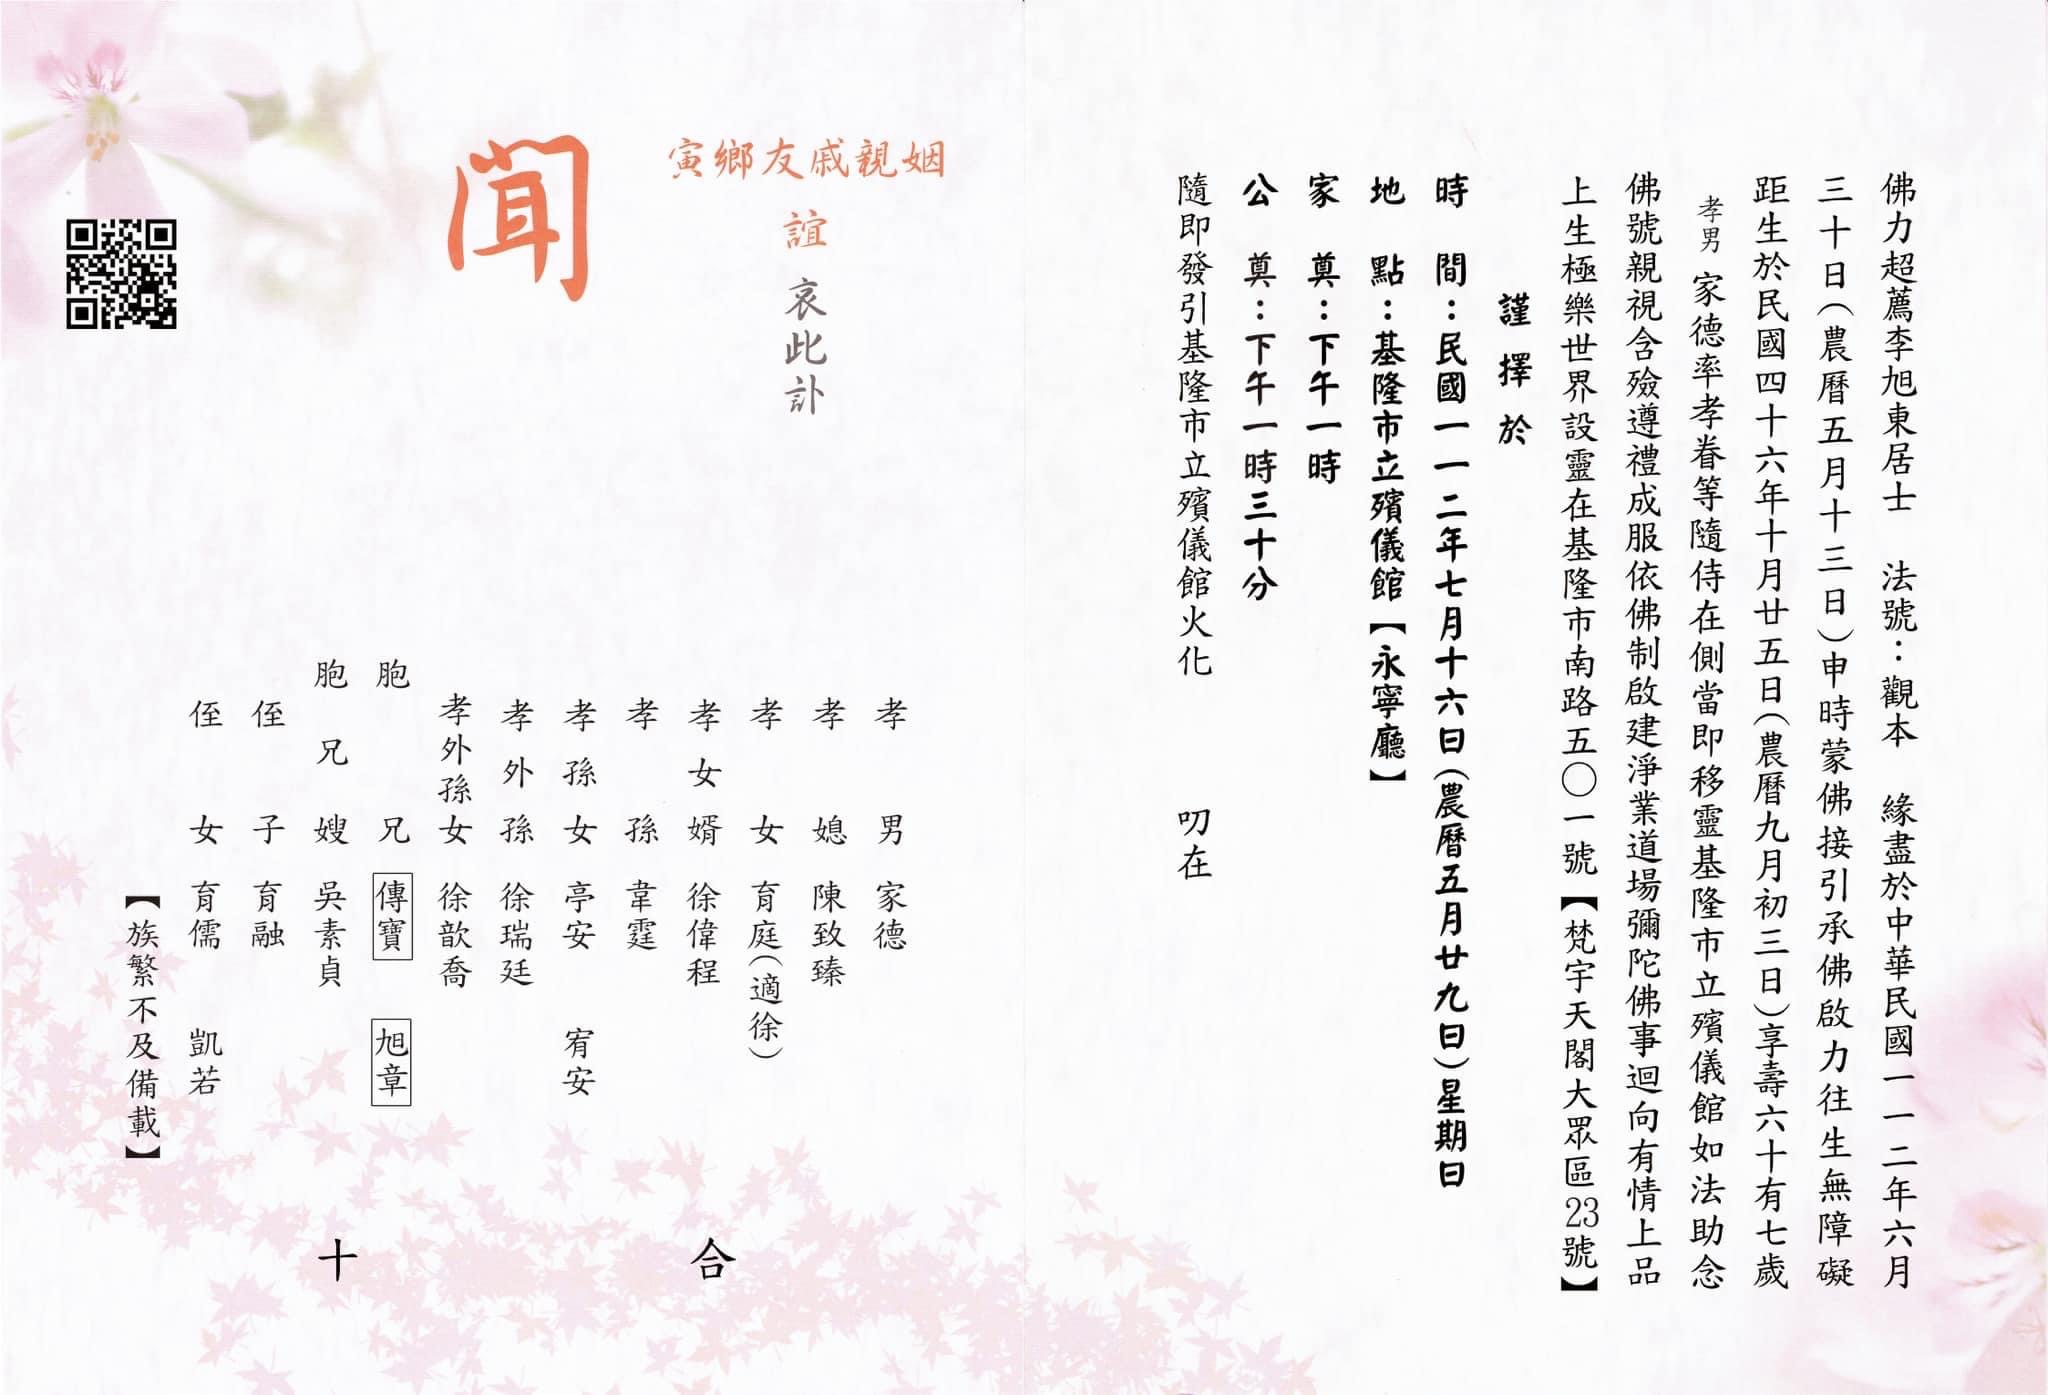 佛力超薦李旭東居士　法號：觀本　緣盡於中華民國一一二年六月
三十日(農曆五月十三日)申時蒙佛接引承佛啟力往生無障礙
距生於民國四十六年十月廿五日(農曆九月初三日)享壽六十有七歲
孝男 家德率孝眷等隨侍在側當即移靈基隆市立殯儀館如法助念
佛號親視含殮遵禮成服依佛制啟建淨業道場彌陀佛事迴向有情上品
上生極樂世界設靈在基隆市南路五〇一號【梵宇天閣大眾區23號】
謹擇於
時　間：民國一一二年七月十六日(農曆五月廿九日)星期日
地　點：基隆市立殯儀館【永寧廳】
家　奠：下午一時
公　奠：下午一時三十分
隨即發引基隆市立殯儀館火化　　叨在
姻親戚友鄉寅
誼 哀此訃
聞
孝男 家德
孝媳 陳致臻
孝女 育庭(適徐)
孝女婿 徐偉程
孝孫 韋霆
孝孫女 亭安 宥安
孝外孫 徐瑞廷
孝外孫女 徐歆喬
胞兄 傳寶 旭章
胞兄嫂 吳素貞
侄子 育融
侄女 育儒 凱若
【族繁不及備載】
合十